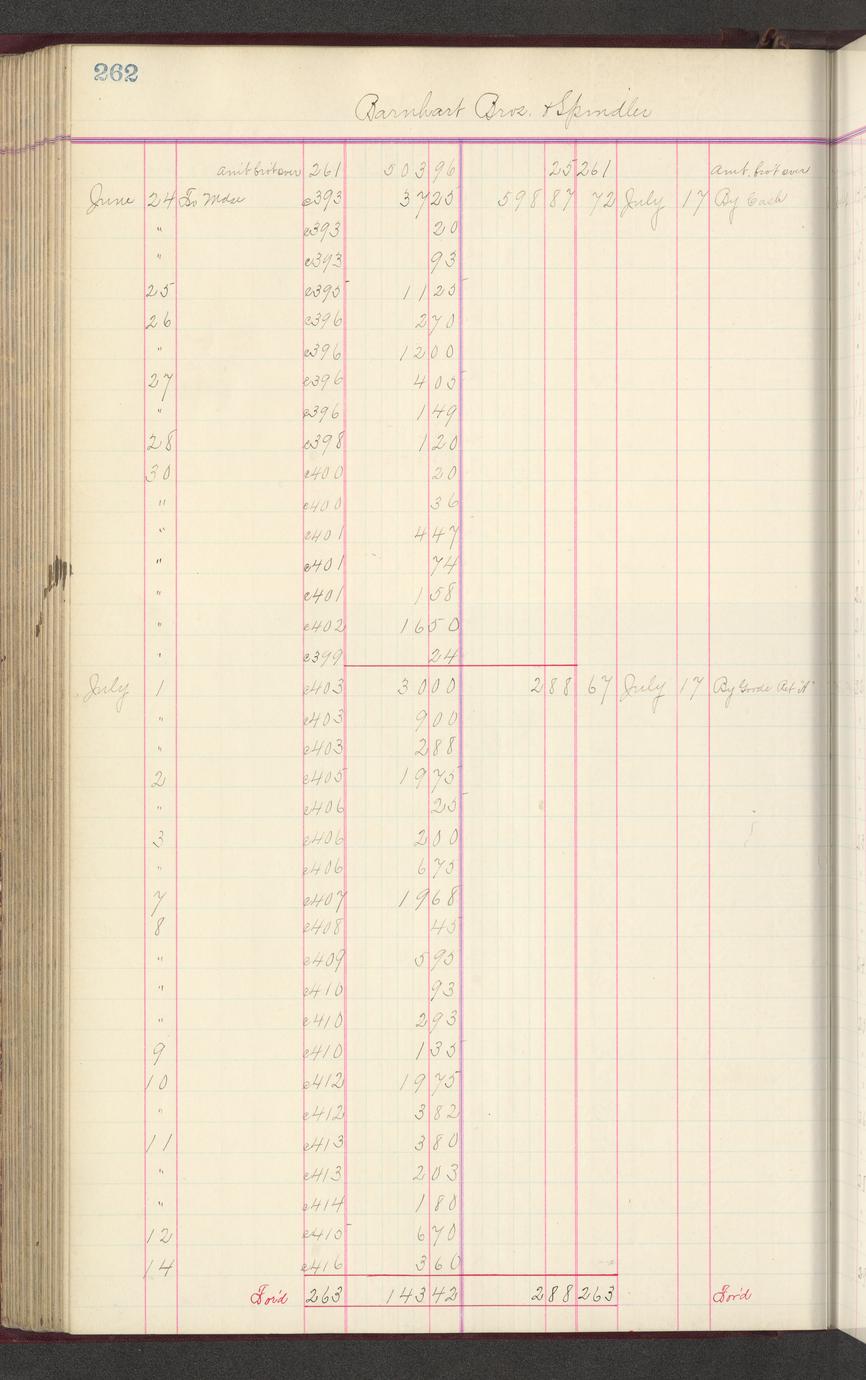 262
Barnhart Bros. & Spindler
amt brot over 261 503 96 25 261 amt. brot over
June 24 To Mdse c393 37 25 598 87 72 July 17 By Cash
" c393 20
" c393 93
25 c395 11 25
26 c396 2 70
" c396 12 00
27 c396 4 05
" c396 1 49
28 c398 1 20
30 c400 20
" c400 36
" c401 4 47
" c401 74
" c401 1 58
" c402 16 50
" c399 24
July 1 c403 30 00 2 88 67 July 17 By Goods Ret
" c403 9 00
" c403 2 88
2 c405 19 75
" c406 25
3 c406 2 00
" c406 6 75
7 c407 19 68
8 c408 45
" c409 5 95
" c410 93
" c410 2 93
9 c410 1 35
10 c412 19 75
" c412 3 82
11 c413 3 80
" c413 2 03
" c414 1 80
12 c415 6 70
14 c416 3 60
For'd 263 143 42 2 88 263 For'd